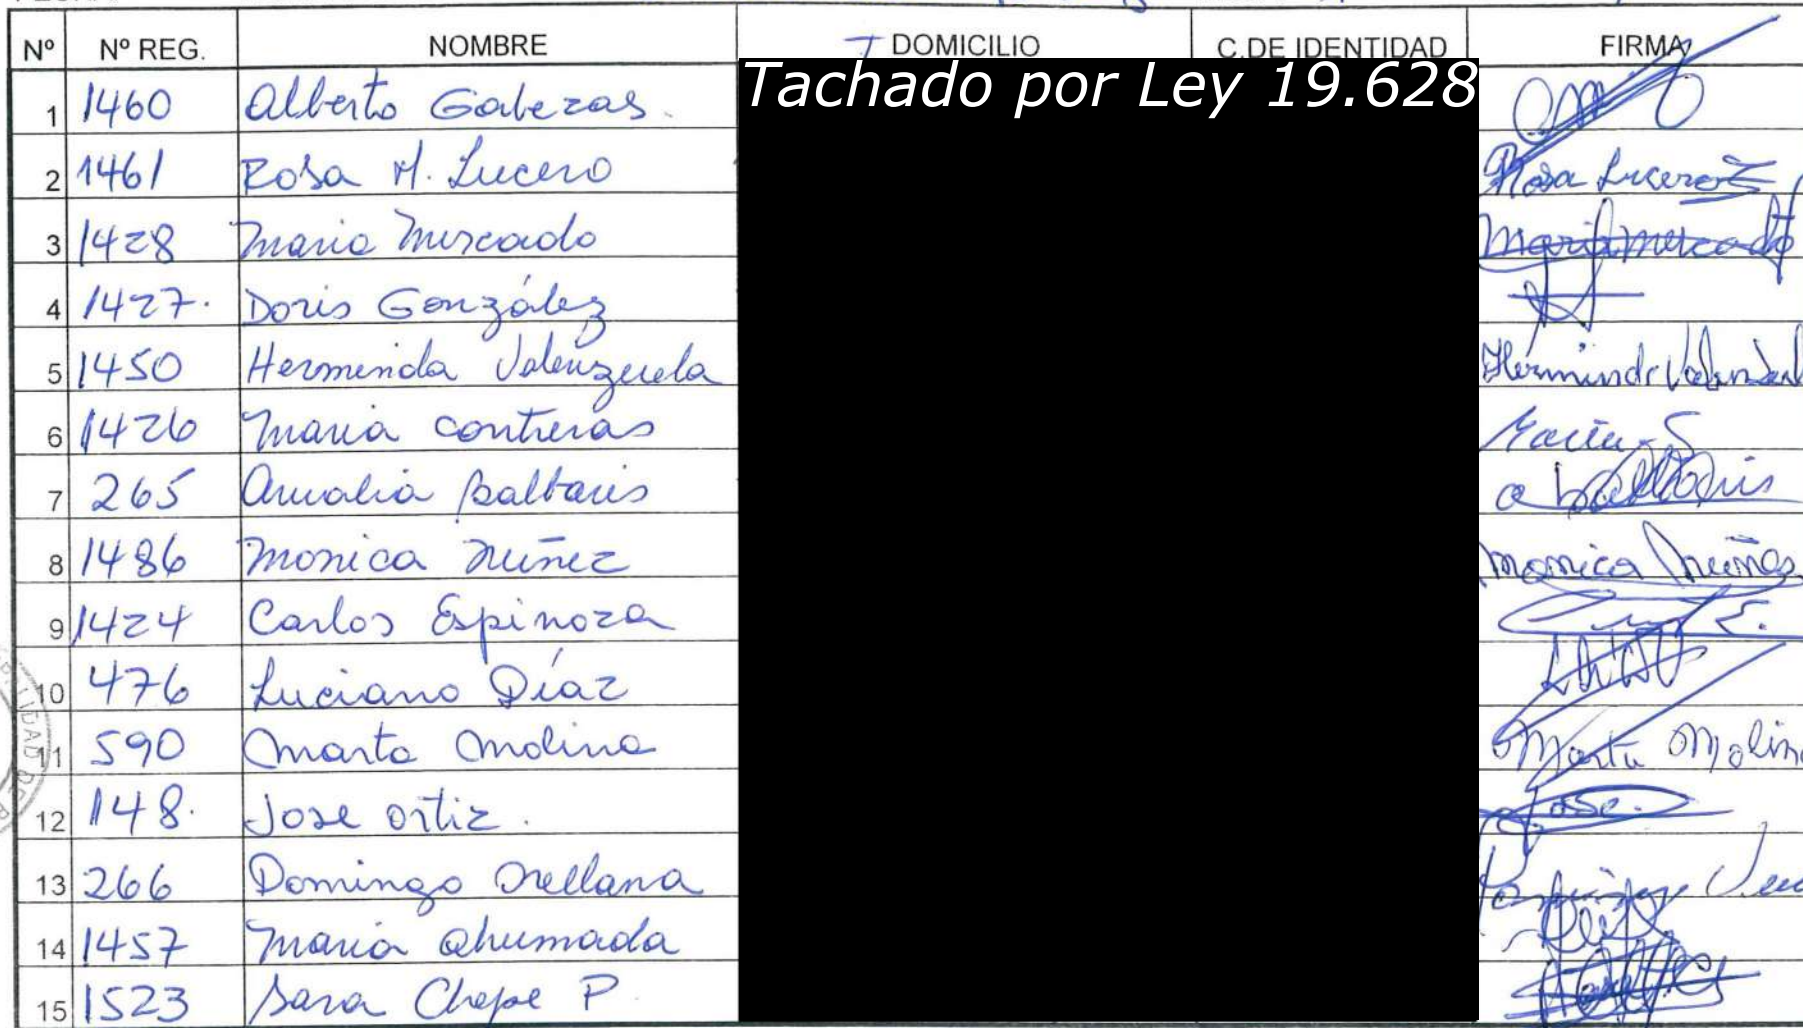 Nº Nº REG. NOMBRE DOMICILIO C.DE IDENTIDAD FIRMA
Tachado por Ley 19.628
1 1460 Alberto Gabezas.
2 1461 Rosa M. Lucero Rosa Lucero
3 1428 Maria Mercado Maria Mercado
4 1427. Doris González
5 1450 Herminda Valenzuela
6 1426 Maria Contreras Maria
7 265 Amalia Balbaris
8 1486 Monica Nuñez Monica Nuñez
9 1424 Carlos Espinoza
10 476 Luciano Díaz
11 590 Marta Molina Marta Molina
12 148. Jose Ortiz. Jose.
13 266 Domingo Orellana
14 1457 Maria Ahumada
15 1523 Sara Chepe P.